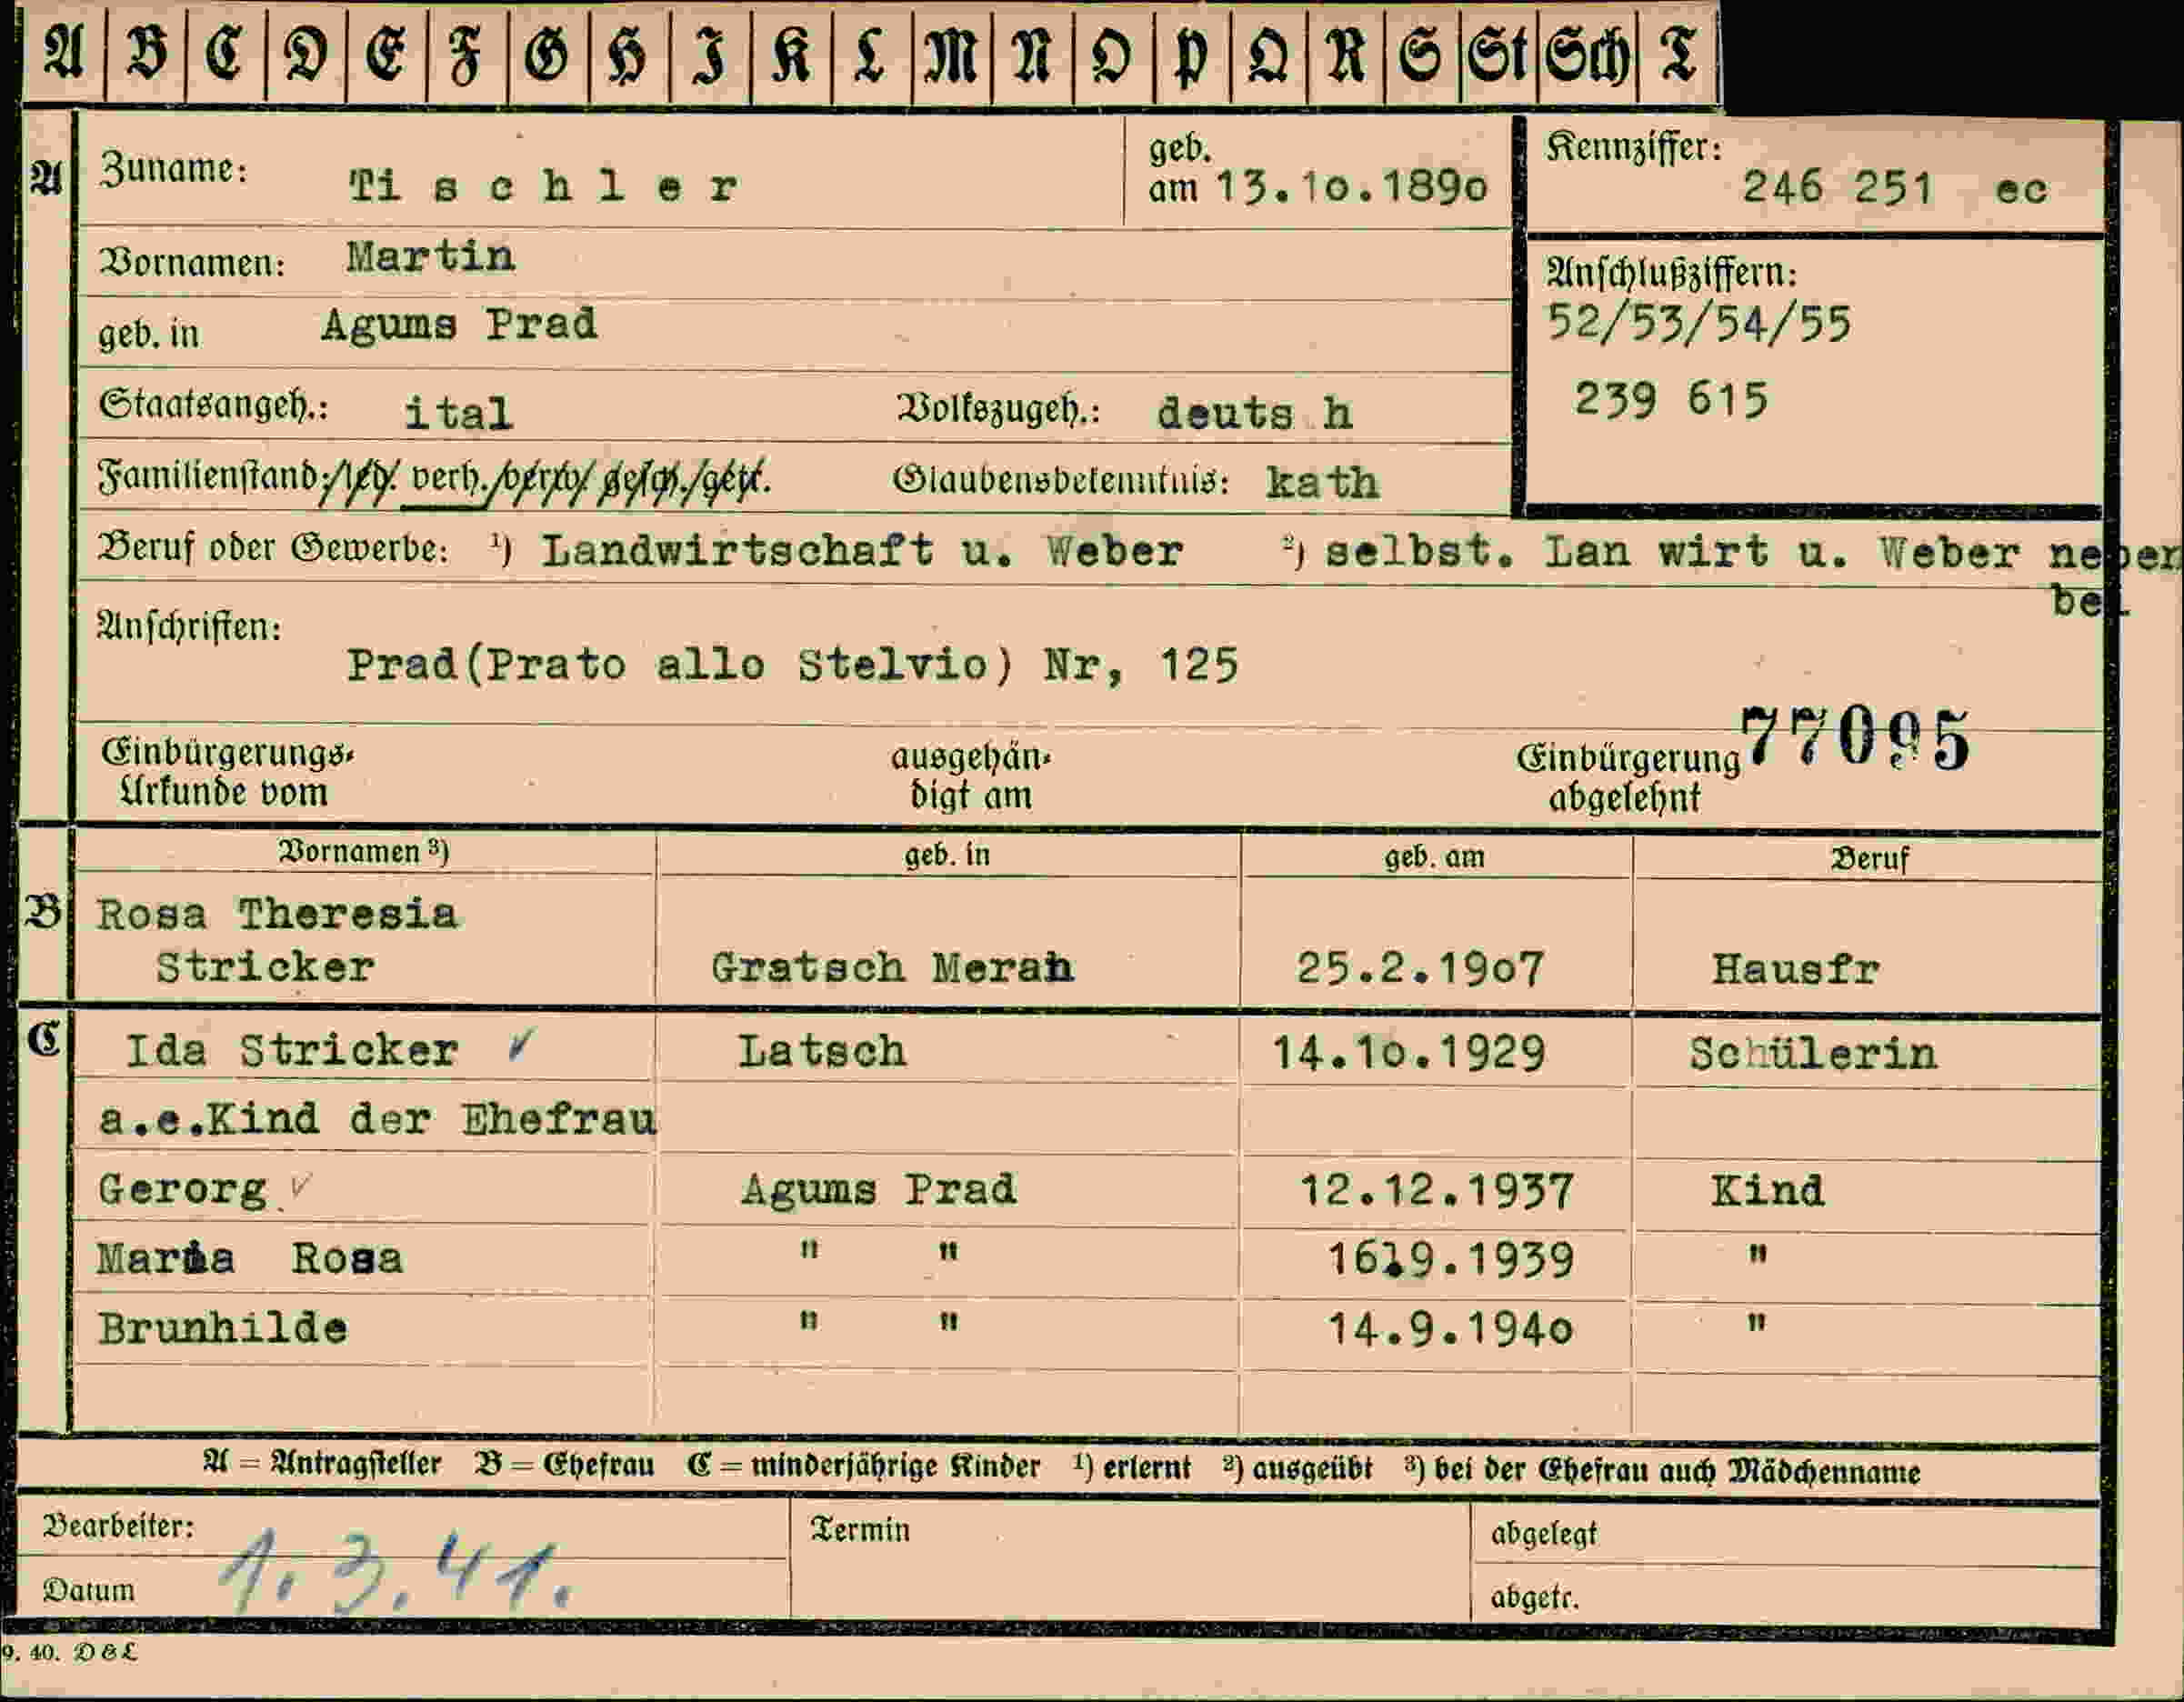 A B C D E F G H I K L M N O P Q R S St Sch T
A Zuname: Ti s c h l e r geb. am 13.10.1890 Kennziffer: 246 251 ec
Vornamen: Martin
Anschlußziffern:
geb. in Agums Prad 52/53/54/55
Staatsangeh.: ital Volkszugeh.: deuts h 239 615
Familienstand: led. verh. verw. gesch./getr. Glaubensbekenntnis: kath
Beruf oder Gewerbe: ¹) Landwirtschaft u. Weber ²) selbst. Lan wirt u. Weber neben
bei
Anschriften:
Prad(Prato allo Stelvio) Nr, 125
77095
Einbürgerungs- ausgehän- Einbürgerung
Urkunde vom digt am abgelehnt
Vornamen ³) geb. in geb. am Beruf
B Rosa Theresia
Stricker Gratsch Meran 25.2.1907 Hausfr
C Ida Stricker ✓ Latsch 14.10.1929 Schülerin
a.e.Kind der Ehefrau
Gerorg ✓ Agums Prad 12.12.1937 Kind
Maria Rosa " " 16.9.1939 "
Brunhilde " " 14.9.1940 "
A = Antragsteller B = Ehefrau C = minderjährige Kinder ¹) erlernt ²) ausgeübt ³) bei der Ehefrau auch Mädchenname
Bearbeiter: Termin abgelegt
1.3.41.
Datum abgetr.
9. 40. D & L